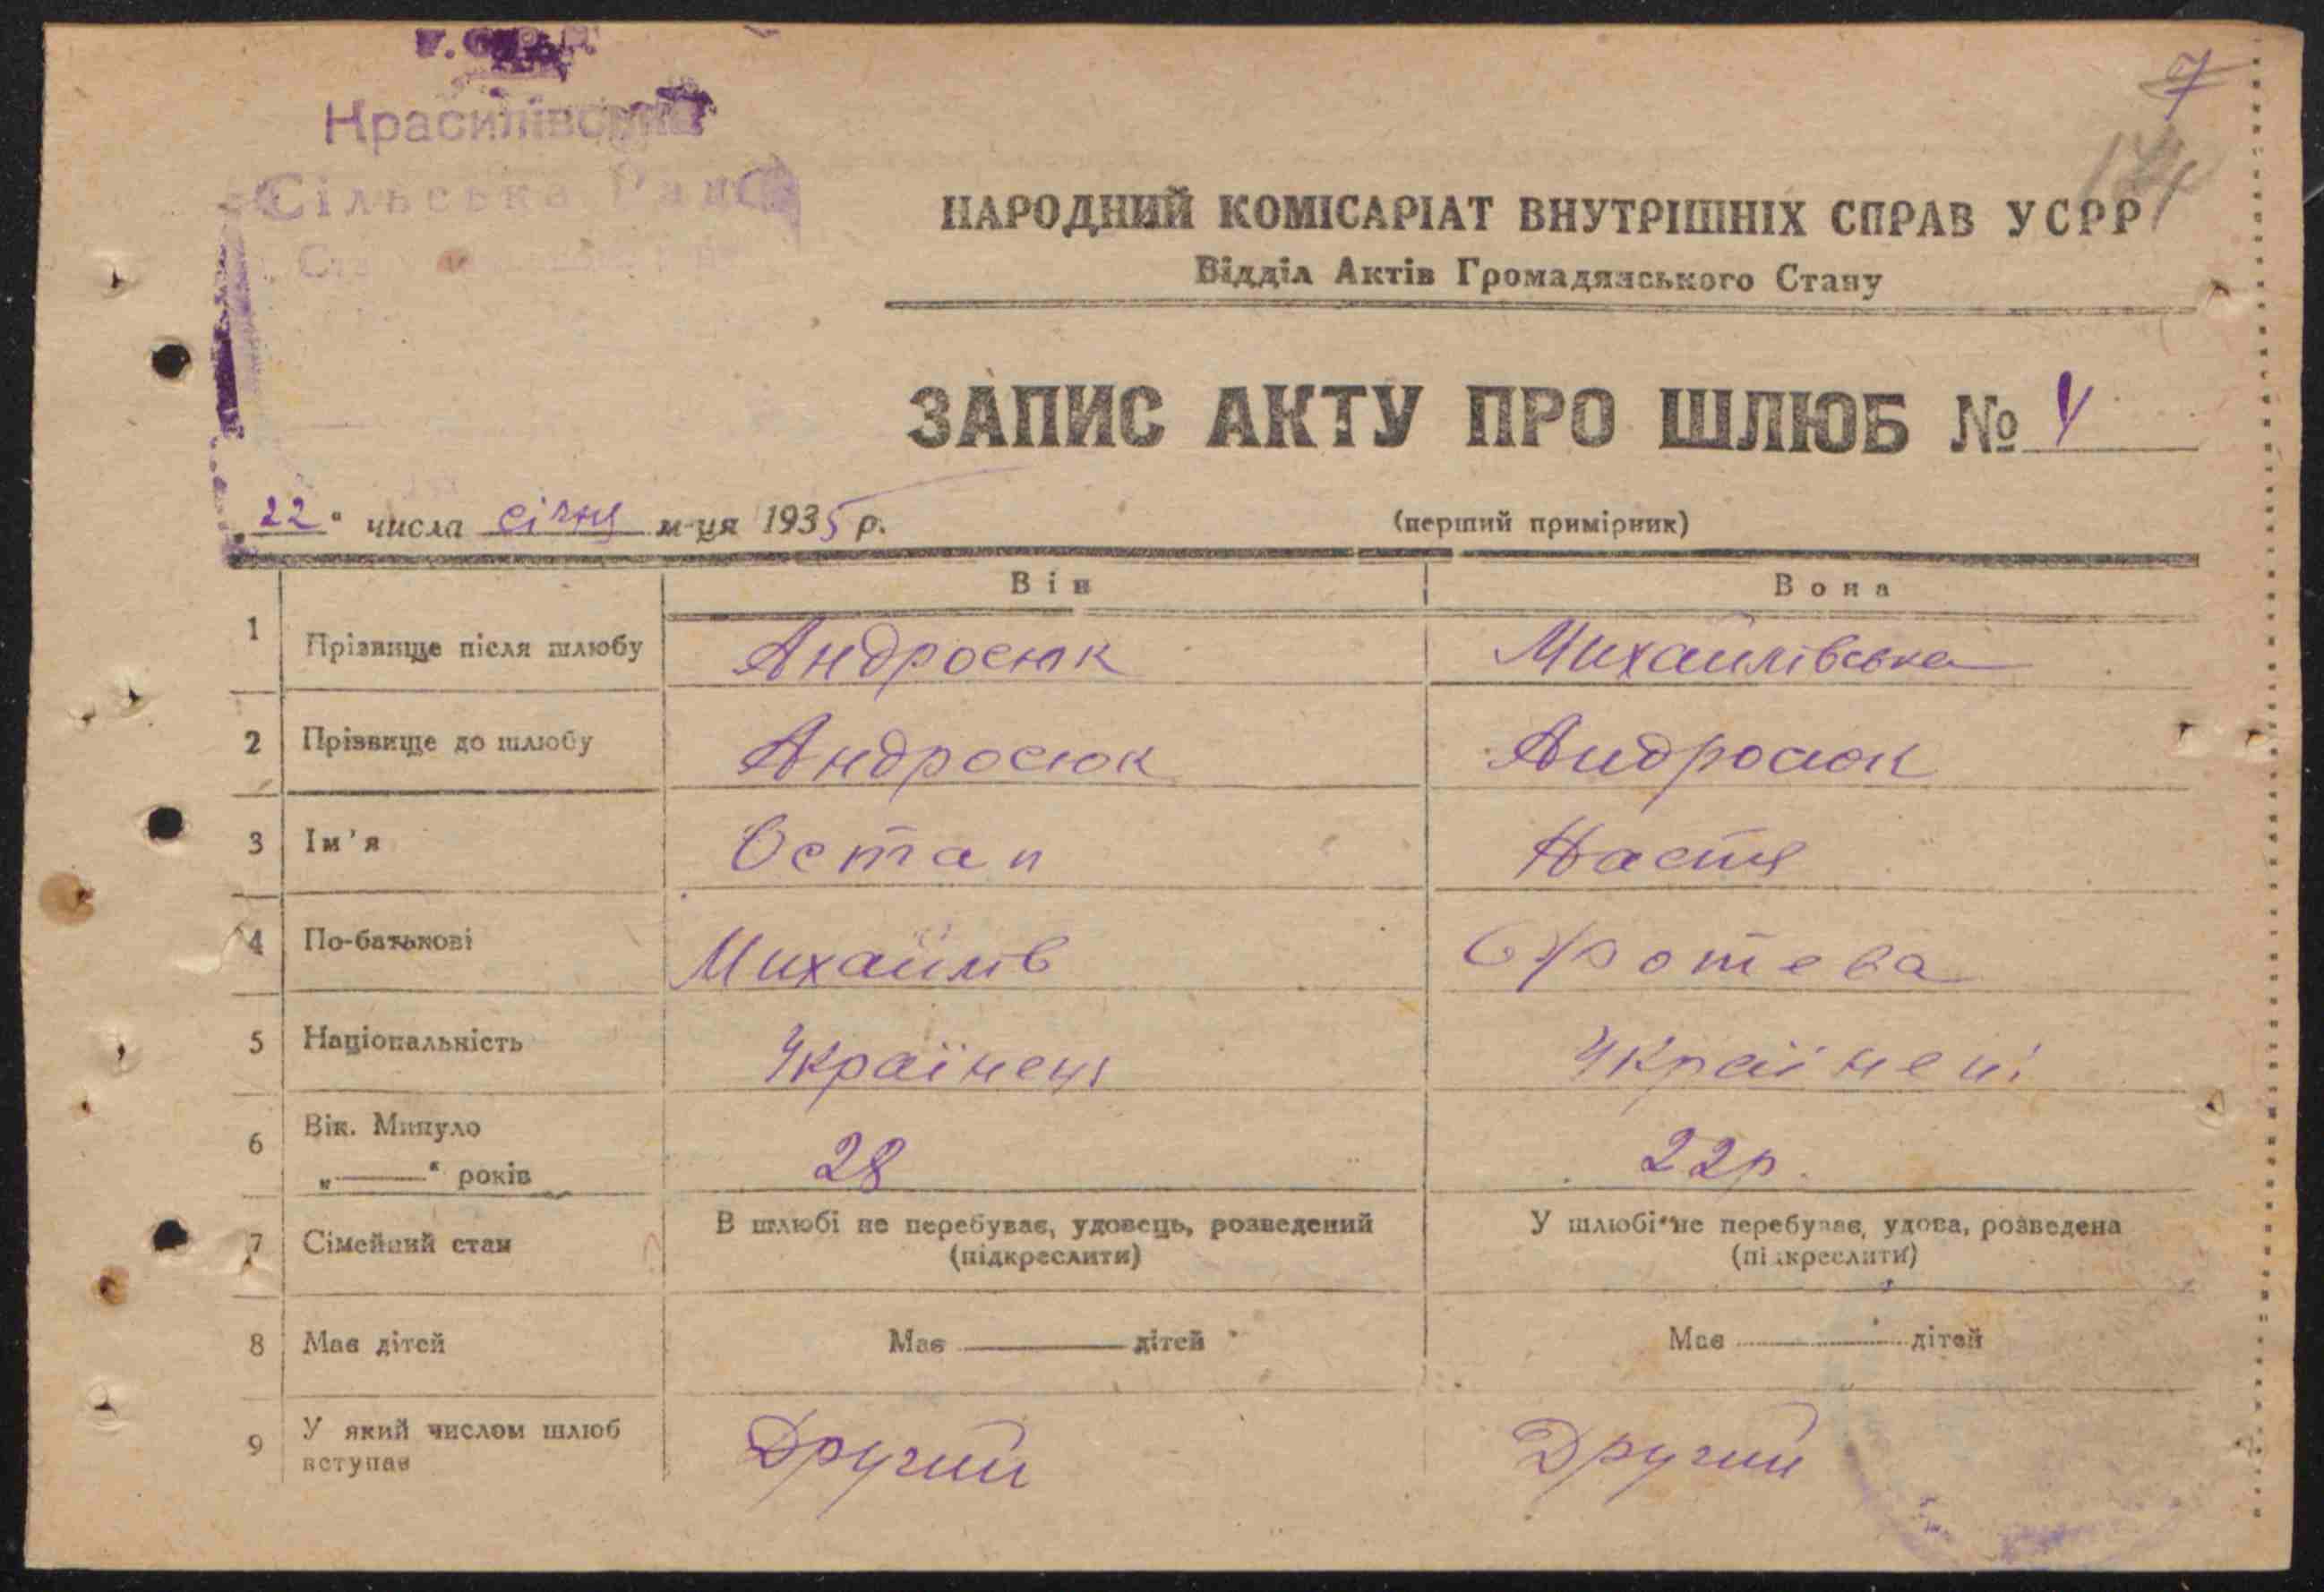 У.С.Р.Р.
Красилівська
Сільська Рада
7
174
НАРОДНИЙ КОМІСАРІАТ ВНУТРІШНІХ СПРАВ УСРР
Відділ Актів Громадянського Стану
ЗАПИС АКТУ ПРО ШЛЮБ № 4
„22“ числа січня м-ця 1935 р.
(перший примірник)
Він
Вона
1 Прізвище після шлюбу Андросюк Михайлівська
2 Прізвище до шлюбу Андросюк Андросюк
3 Ім'я Остап Настя
4 По-батькові Михайлів
5 Національність Українець Українець
6 Вік. Минуло „——“ років 28 22р.
7 Сімейний стан В шлюбі не перебуває, удовець, розведений (підкреслити) У шлюбі не перебуває, удова, розведена (підкреслити)
8 Має дітей Має ——— дітей Має ........ дітей
9 У який числом шлюб вступає Другий Другий